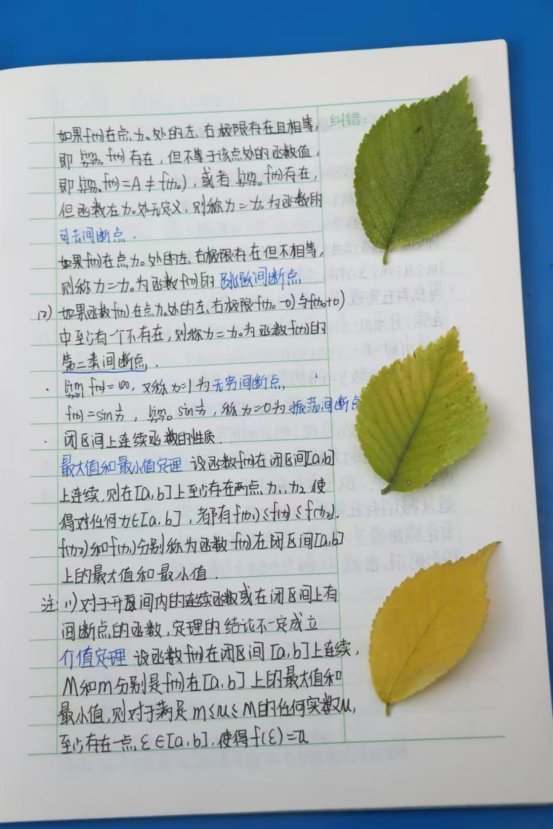 纠错:
如果f(x)在点x₀处的左、右极限存在且相等,
即 lim x→x₀ f(x)存在,但不等于该点处的函数值,
即 lim x→x₀ f(x)=A≠f(x₀),或者 lim x→x₀ f(x)存在,
但函数在x₀处无定义,则称x=x₀为函数的
可去间断点.
如果f(x)在点x₀处的左、右极限存在但不相等,
则称x=x₀为函数f(x)的跳跃间断点
(2) 如果函数f(x)在点x₀处的左、右极限f(x₀-0)与f(x₀+0)
中至少有一个不存在,则称x=x₀为函数f(x)的
第二类间断点.
· lim x→1 f(x)=∞,又称x=1为无穷间断点,
f(x)=sin 1/x, lim x→0 sin 1/x,称x=0为振荡间断点
· 闭区间上连续函数的性质.
最大值和最小值定理 设函数f(x)在闭区间[a,b]
上连续,则在[a,b]上至少存在两点x₁,x₂,使
得对任何x∈[a,b],都有f(x₁)≤f(x)≤f(x₂).
f(x₂)和f(x₁)分别称为函数f(x)在闭区间[a,b]
上的最大值和最小值.
注:1)对于开区间内的连续函数或在闭区间上有
间断点的函数,定理的结论不一定成立
介值定理 设函数f(x)在闭区间[a,b]上连续,
M和m分别是f(x)在[a,b]上的最大值和
最小值,则对于满足m≤u≤M的任何实数u,
至少存在一点ξ∈[a,b],使得f(ξ)=u